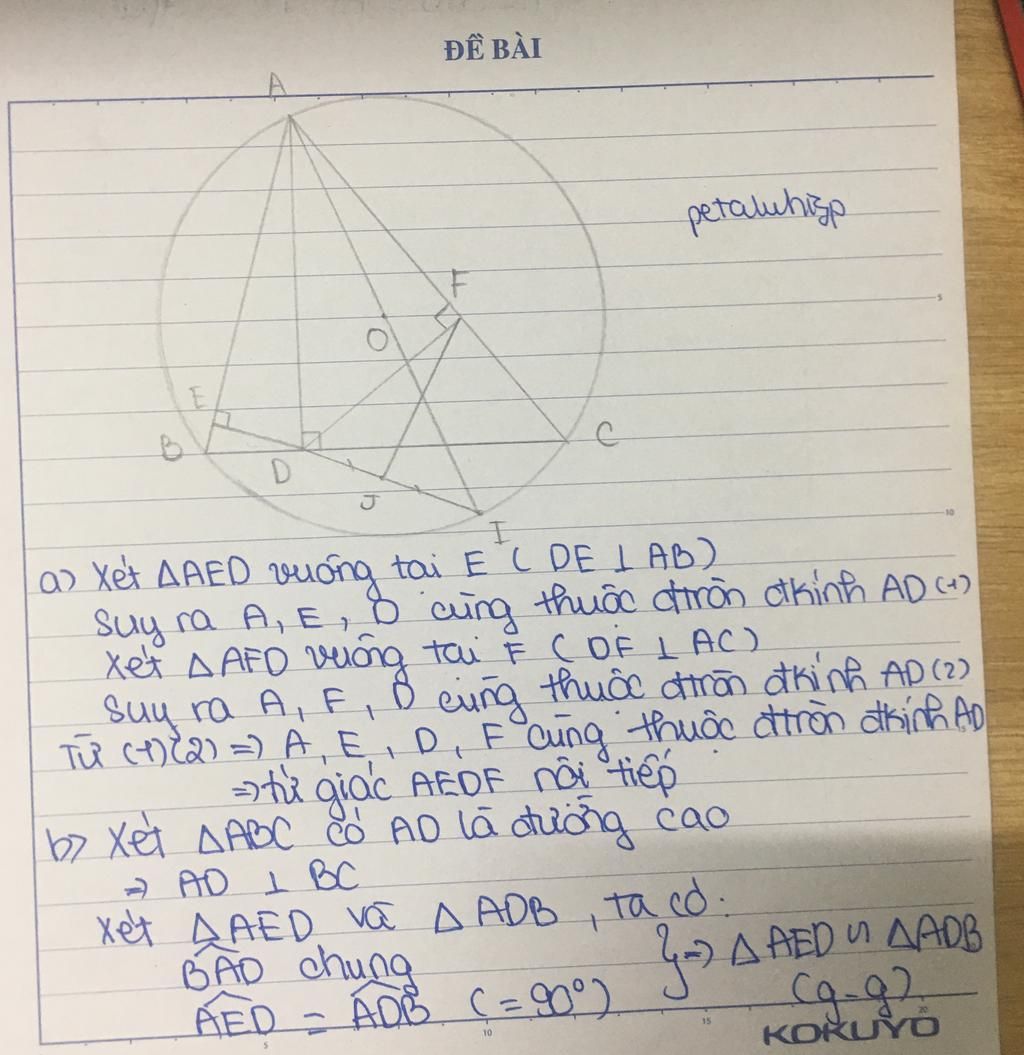 ĐỀ BÀI
A
petaluhiệp
F
O
E
B
D
C
J
I
a) Xét ΔAED vuông tại E ( DE ⊥ AB)
Suy ra A, E, D cùng thuộc đtròn đkính AD (1)
Xét ΔAFD vuông tại F ( DF ⊥ AC)
Suy ra A, F, D cùng thuộc đtròn đkính AD (2)
Từ (1)(2) => A, E, D, F cùng thuộc đtròn đkính AD
=> tứ giác AEDF nội tiếp
b) Xét ΔABC có AD là đường cao
=> AD ⊥ BC
Xét ΔAED và ΔADB, ta có:
BAD chung
} => ΔAED ∽ ΔADB
AED = ADB (= 90°)
(g-g)
5
10
5
10
15
20
KOKUYO